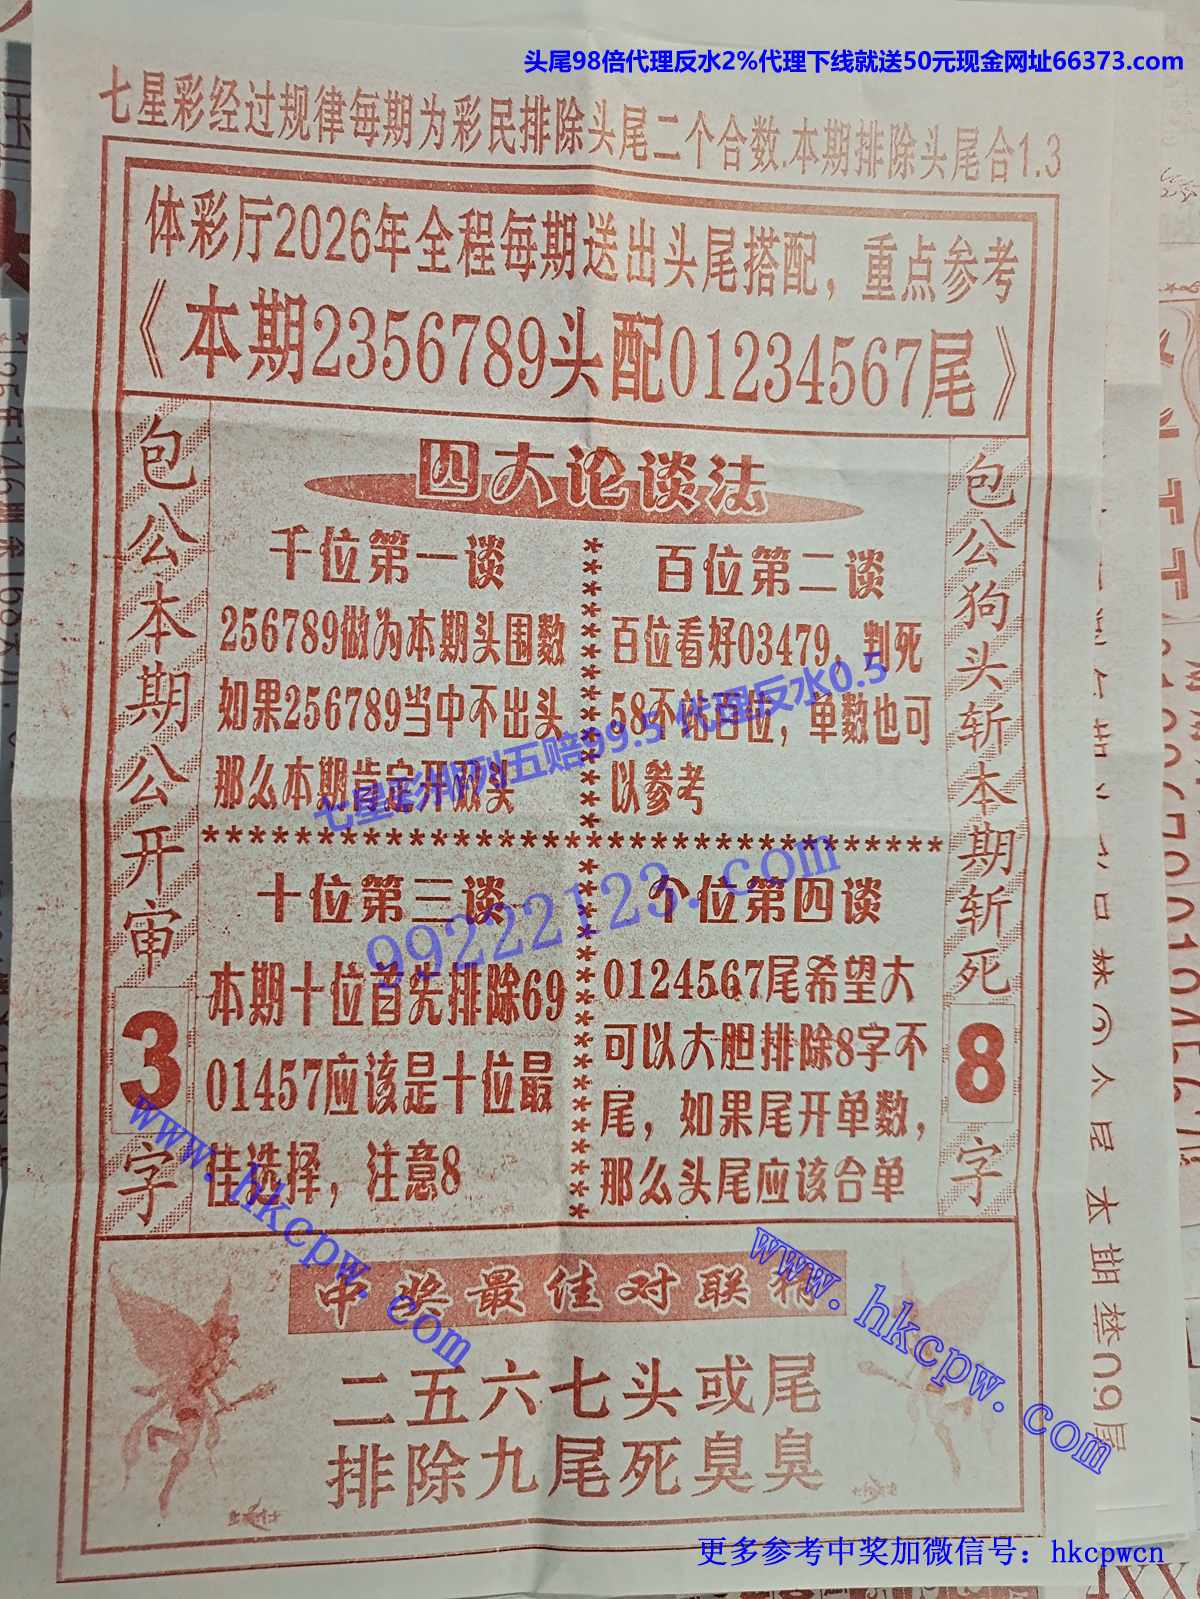 头尾98倍代理反水2%代理下线就送50元现金网址66373.com
七星彩经过规律每期为彩民排除头尾二个合数.本期排除头尾合1.3
体彩厅2026年全程每期送出头尾搭配，重点参考
《本期2356789头配01234567尾》
包公本期公开审3字
四大论谈法
千位第一谈
256789做为本期头围数
如果256789当中不出头
那么本期肯定开双头
百位第二谈
百位看好03479，判死
58不站百位，单数也可
以参考
七星彩排列五赔99.5 代理反水0.5
99222123.com
十位第三谈
本期十位首先排除69
01457应该是十位最
佳选择，注意8
个位第四谈
0124567尾希望大
可以大胆排除8字不
尾，如果尾开单数，
那么头尾应该合单
包公狗头斩本期斩死8字
www.hkcpw.com
www.hkcpw.com
中奖最佳对联精
二五六七头或尾
排除九尾死臭臭
更多参考中奖加微信号：hkcpwcn